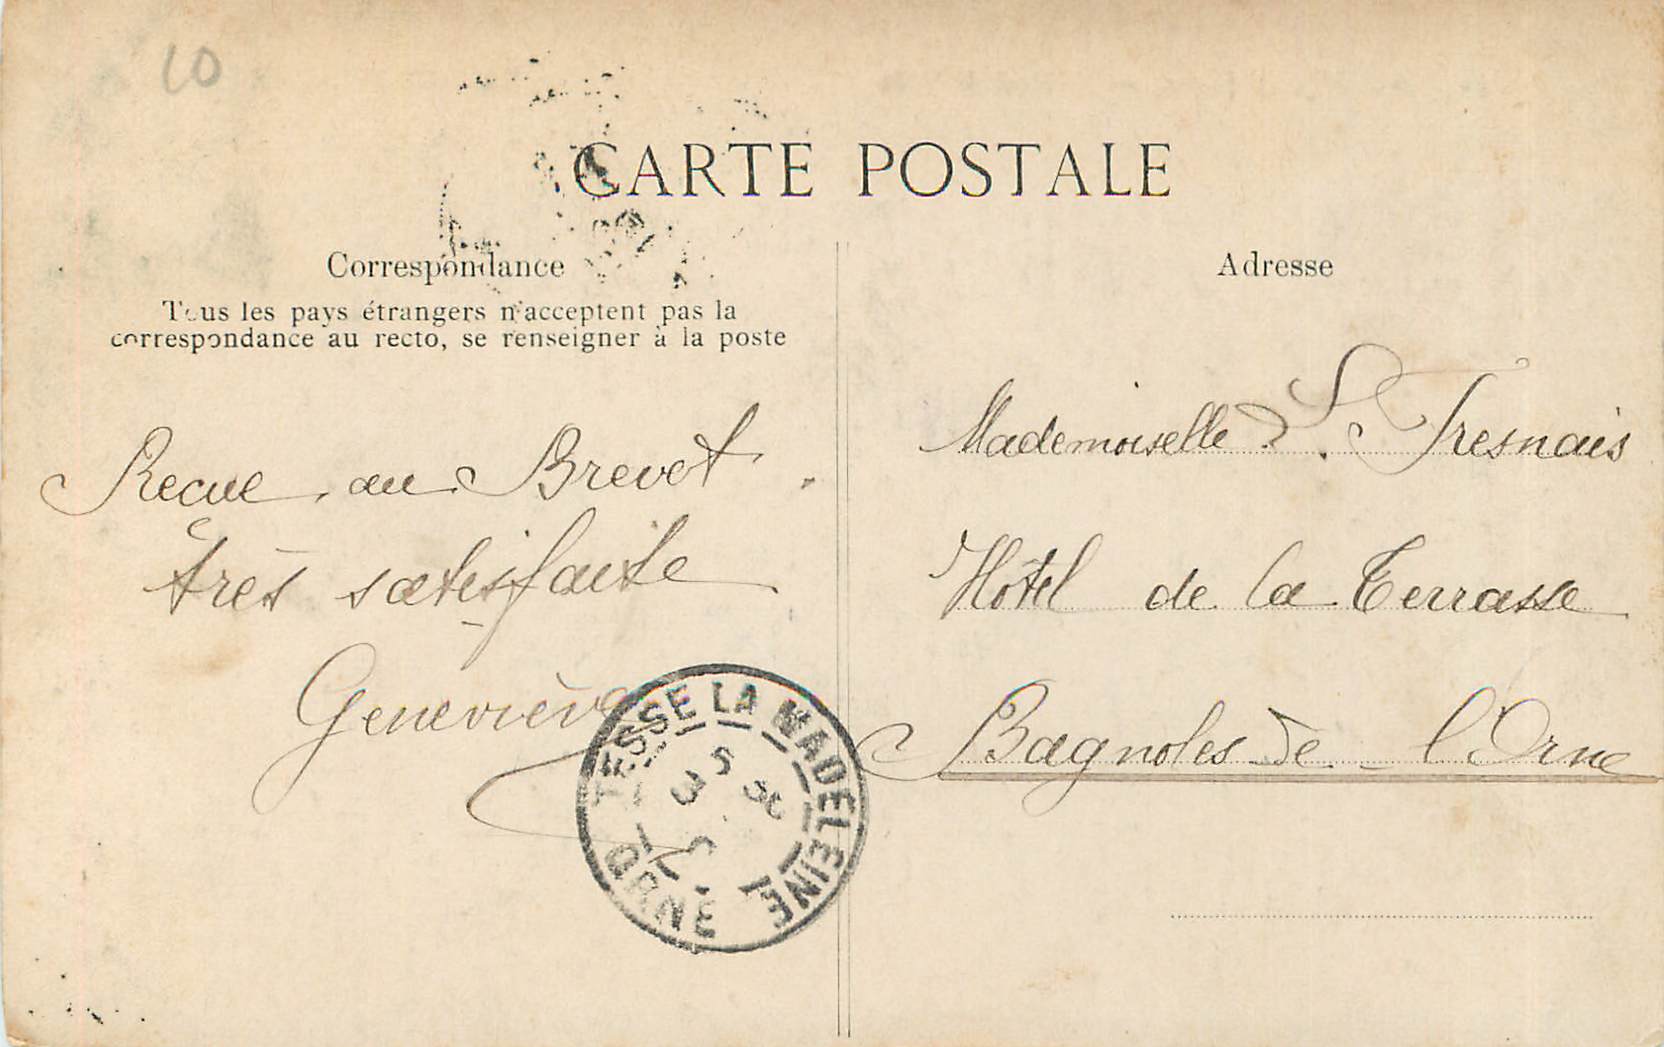 10
CARTE POSTALE
Correspondance
Tous les pays étrangers n'acceptent pas la
correspondance au recto, se renseigner à la poste
Adresse
Recue au Brevet
très satisfaite
Geneviève
Mademoiselle S. Fresnais
Hôtel de la Terrasse
Bagnoles de l'Orne
TESSE LA MADELEINE
ORNE